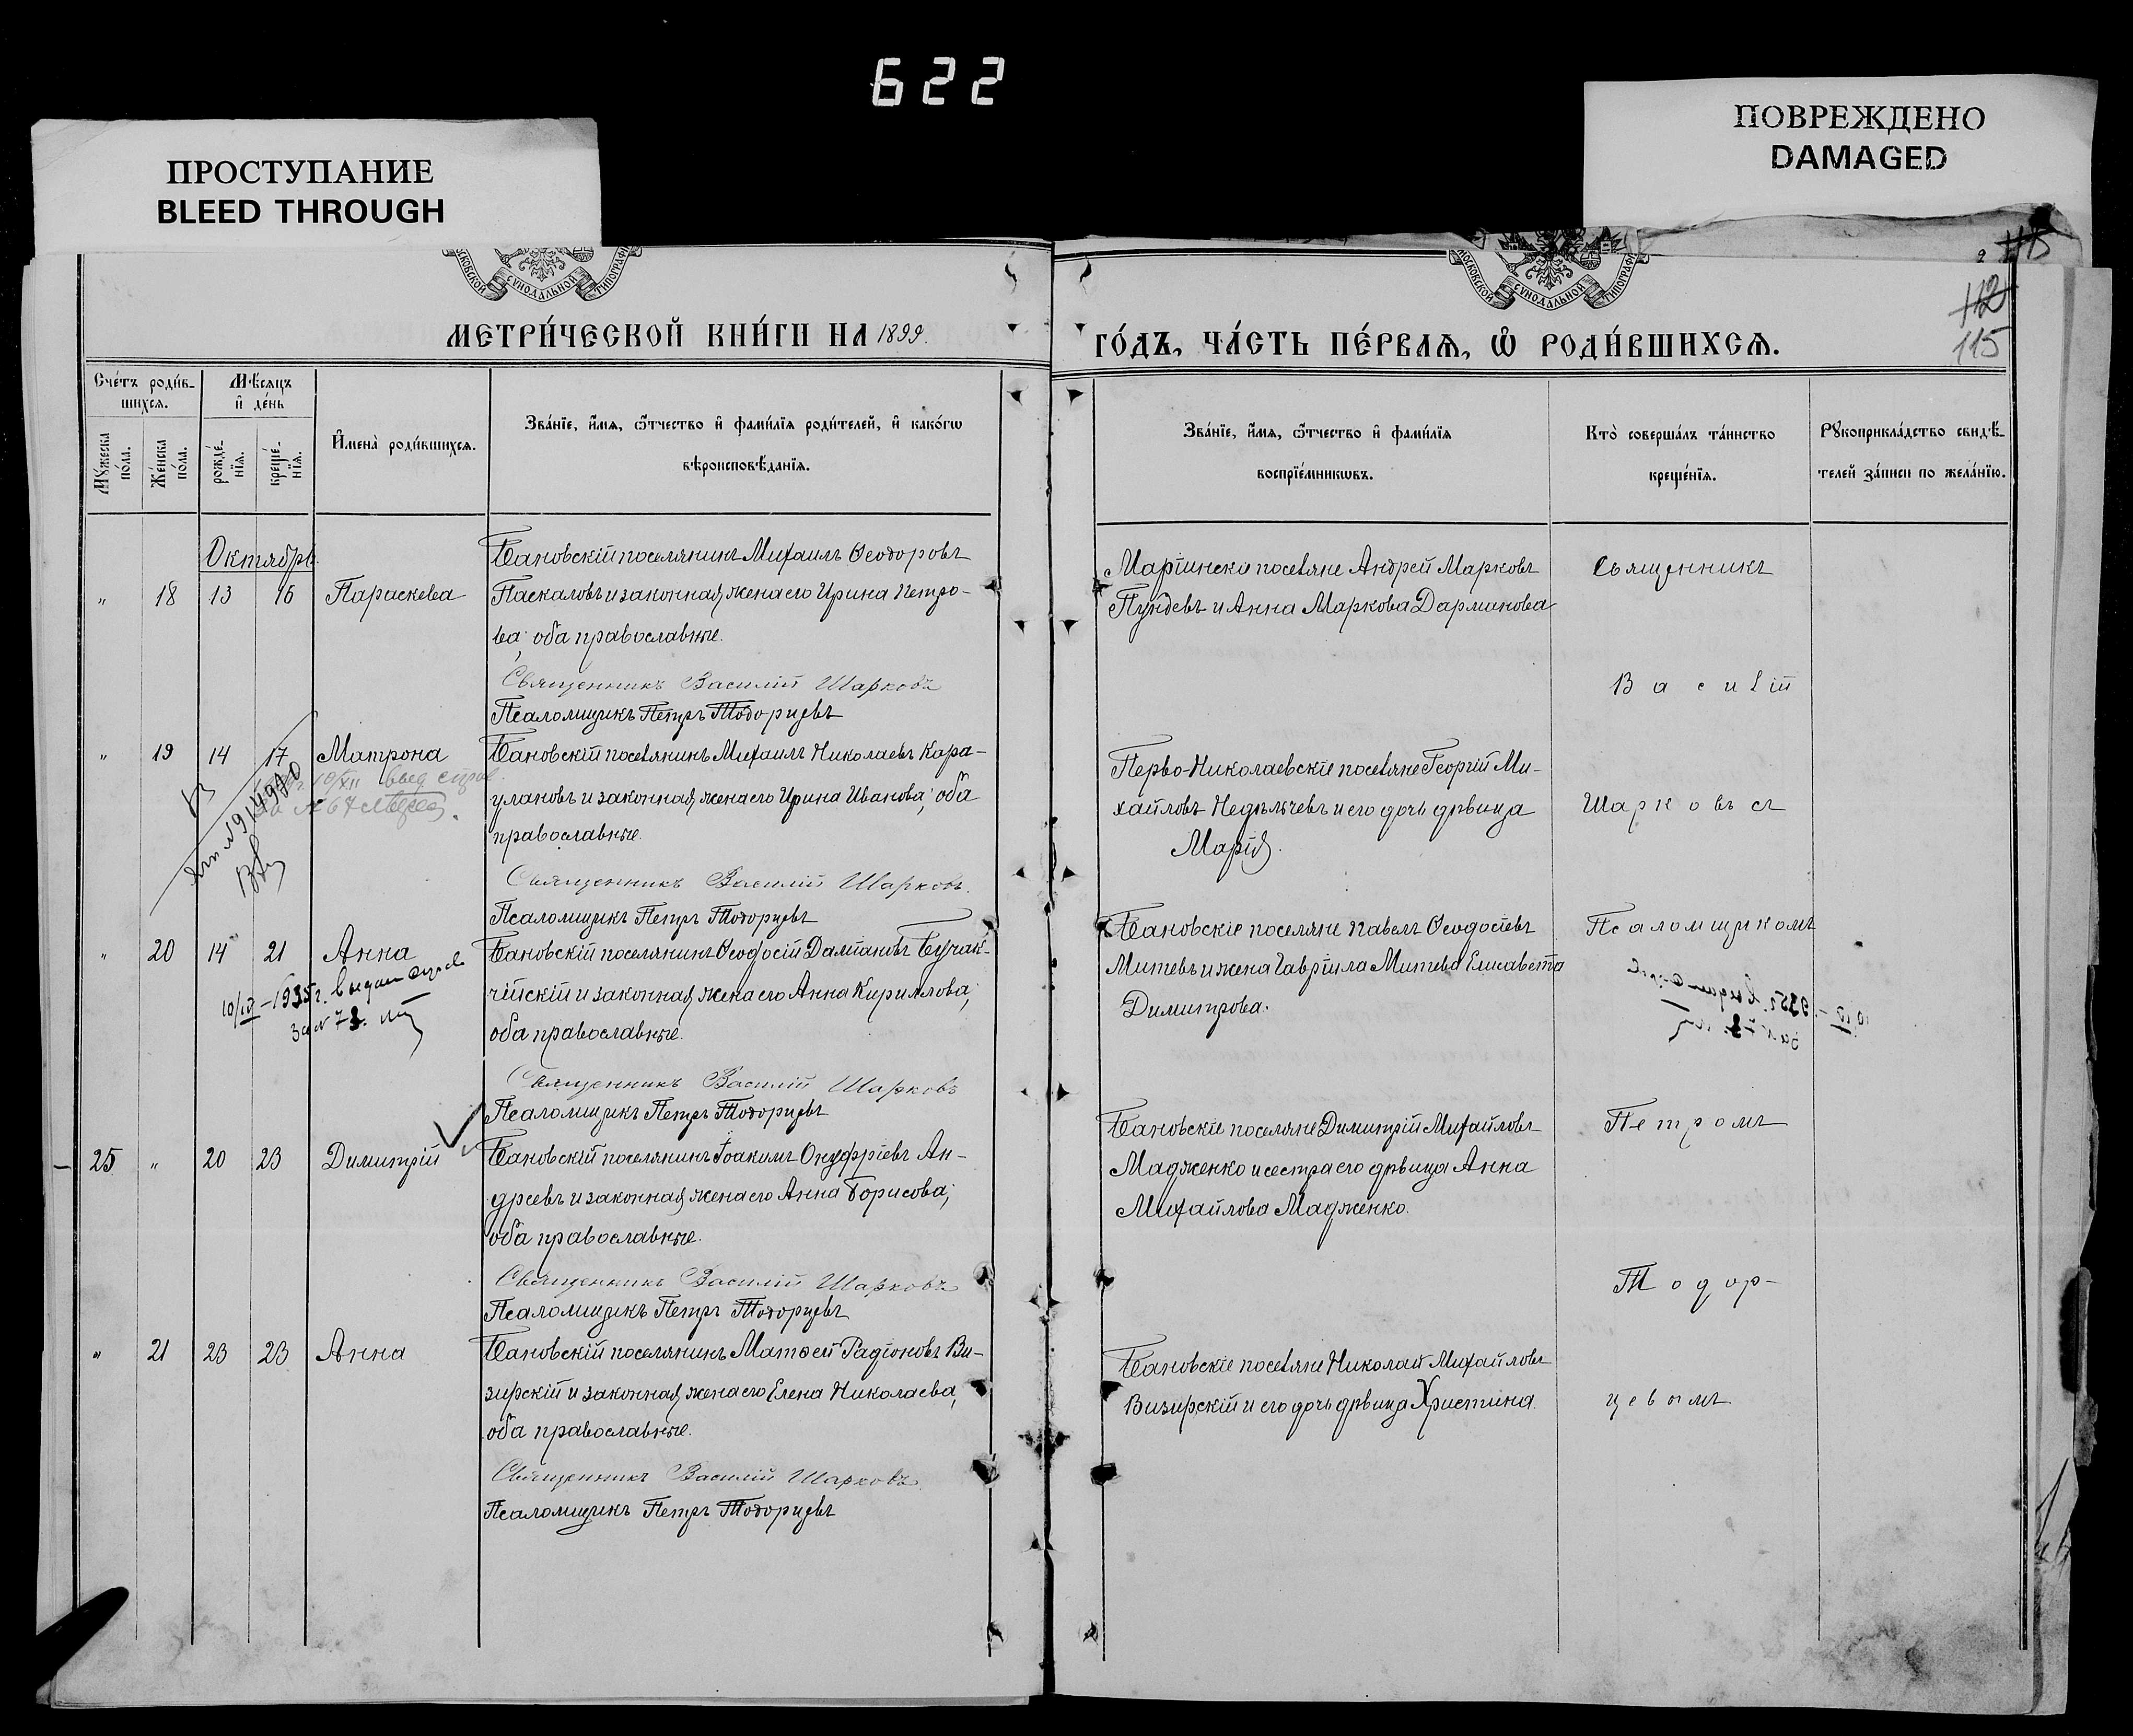 622
ПРОСТУПАНИЕ
BLEED THROUGH
ПОВРЕЖДЕНО
DAMAGED
МОСКОВСКОЙ СѴНОДАЛЬНОЙ ТИПОГРАФІ
МОСКОВСКОЙ СѴНОДАЛЬНОЙ ТИПОГРАФІ
112
115
МЕТРИ́ЧЕСКОЙ КНИ́ГИ НА 1899.
ГО́ДЪ, ЧА́СТЬ ПЕ́РВАѦ, Ѡ҆ РОДИ́ВШИХСѦ.
Сче́тъ роди́в-
шихсѧ.
Мѣ́сяцъ
и҆ де́нь
Мꙋ́жеска
по́ла.
Же́нска
по́ла.
рожде́-
нїѧ.
креще́-
нїѧ.
И҆мена̀ роди́вшихсѧ.
Зва́нїе, и҆́мѧ, ѻ҆́тчество и҆ фами́лїѧ роди́телей, и҆ како́гѡ
вѣроисповѣ́данїѧ.
Зва́нїе, и҆́мѧ, ѻ҆́тчество и҆ фами́лїѧ
воспрїе́мникѡвъ.
Кто̀ соверша́лъ та́инство
креще́нїѧ.
Рꙋкоприкла́дство свидѣ́-
телей за́писи по жела́нїю.
Октябрь
" 18 13 16 Параскева
Бановскій поселянинъ Михаилъ Ѳеодоровъ
Паскаловъ и законная жена его Ирина Петро-
ва; оба православные.
Священникъ Василій Шарковъ
Псаломщикъ Петръ Тодорцевъ
Маріинскіе поселяне Андрей Марковъ
Пундевъ и Анна Маркова Дарманова
" 19 14 17 Матрона
Бановскій поселянинъ Михаилъ Николаевъ Кара-
улановъ и законная жена его Ирина Иванова; оба
православные.
Священникъ Василій Шарковъ.
Псаломщикъ Петръ Тодорцевъ
Перво-Николаевскіе поселяне Георгій Ми-
хайловъ Недѣльчевъ и его дочь дѣвица
Марія.
" 20 14 21 Анна
10/IV – 1935 г. выдан
за № 73.
Бановскій поселянинъ Ѳеодосій Даміановъ Бучак-
чійскій и законная жена его Анна Кириллова;
оба православные.
Священникъ Василій Шарковъ
Псаломщикъ Петръ Тодорцевъ
Бановскіе поселяне Павелъ Ѳеодосіевъ
Митевъ и жена Гавріила Митева Елисавета
Димитрова.
25 " 20 23 Димитрій
Бановскій поселянинъ Іоакимъ Онуфріевъ Ан-
дреевъ и законная жена его Анна Борисова;
оба православные.
Священникъ Василій Шарковъ
Псаломщикъ Петръ Тодорцевъ
Бановскіе поселяне Димитрій Михайловъ
Мадженко и сестра его дѣвица Анна
Михайлова Мадженко.
" 21 23 23 Анна
Бановскій поселянинъ Матѳей Радіоновъ Ви-
зирскій и законная жена его Елена Николаева,
оба православные.
Священникъ Василій Шарковъ
Псаломщикъ Петръ Тодорцевъ
Бановскіе поселяне Николай Михайловъ
Визирскій и его дочь дѣвица Христина.
Священникъ
Василій
Шарковъ съ
Псаломщикомъ
Петромъ
Тодор-
цевымъ